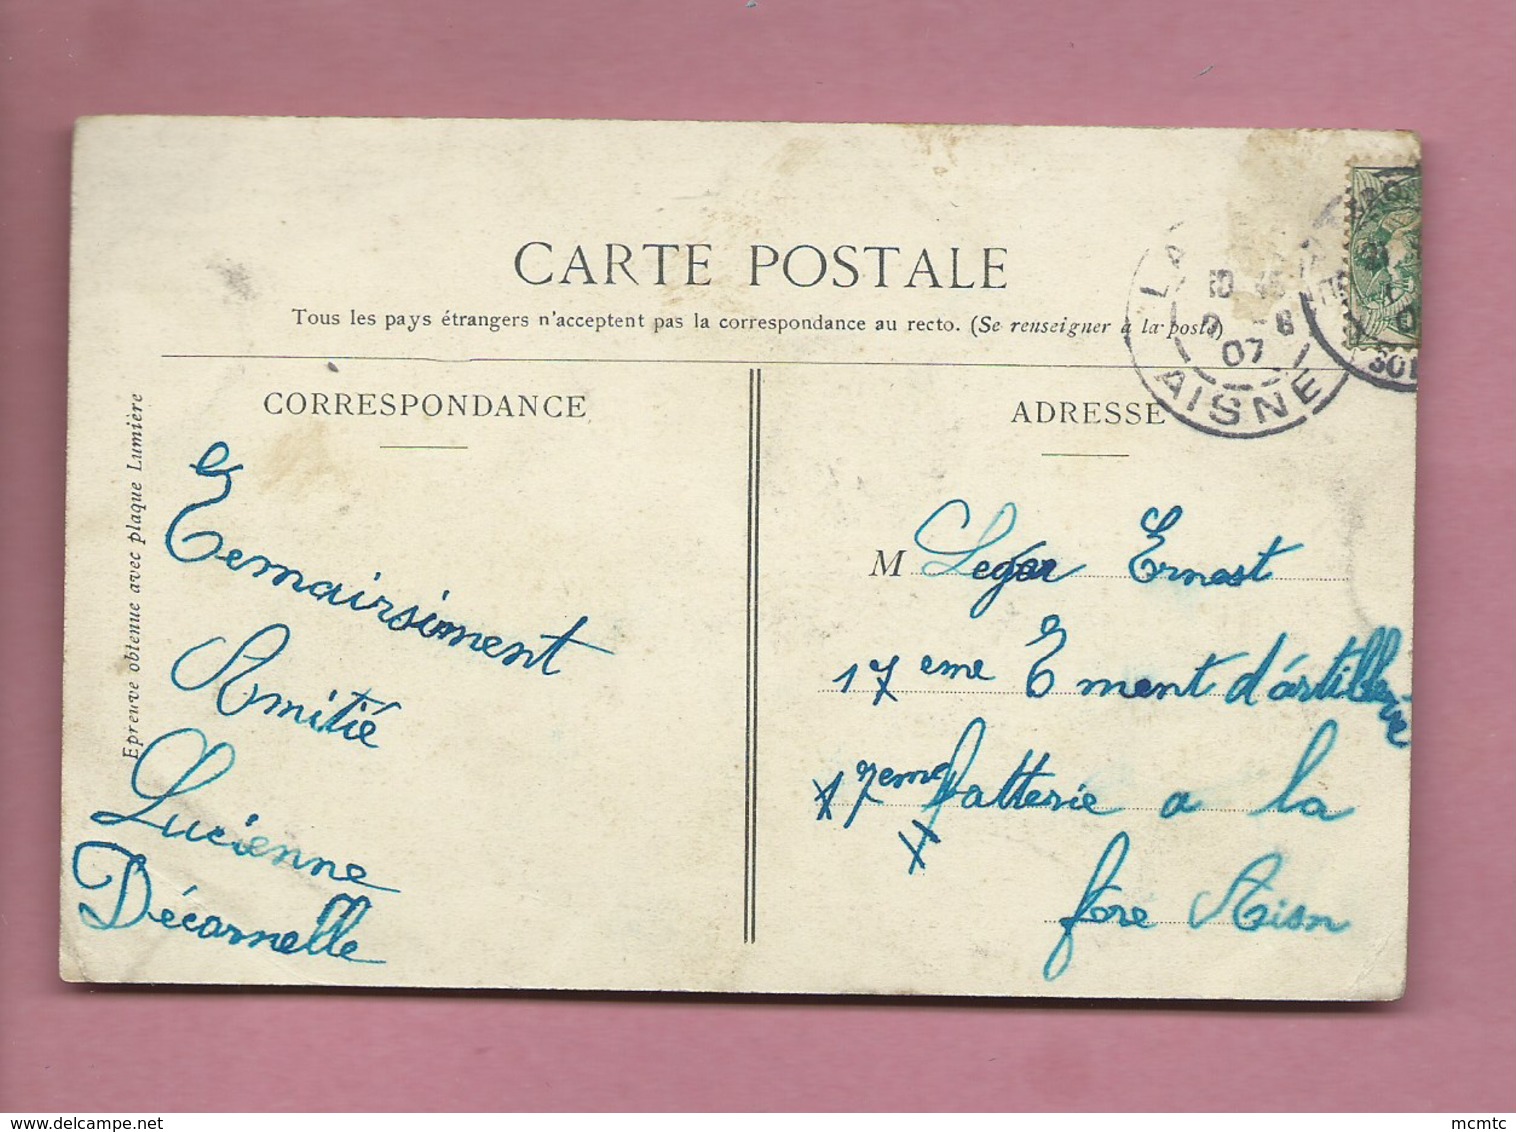 CARTE POSTALE
Tous les pays étrangers n'acceptent pas la correspondance au recto. (Se renseigner à la poste)
CORRESPONDANCE
Epreuve obtenue avec plaque Lumière
Eemairsiment
Amitié
Lucienne
Décarnelle
ADRESSE
M Leger Ernest
17 eme E ment d'artillerie
17eme batterie a la
fere Aisn
LA
10 45
9 -8
07
AISNE
mcmtc